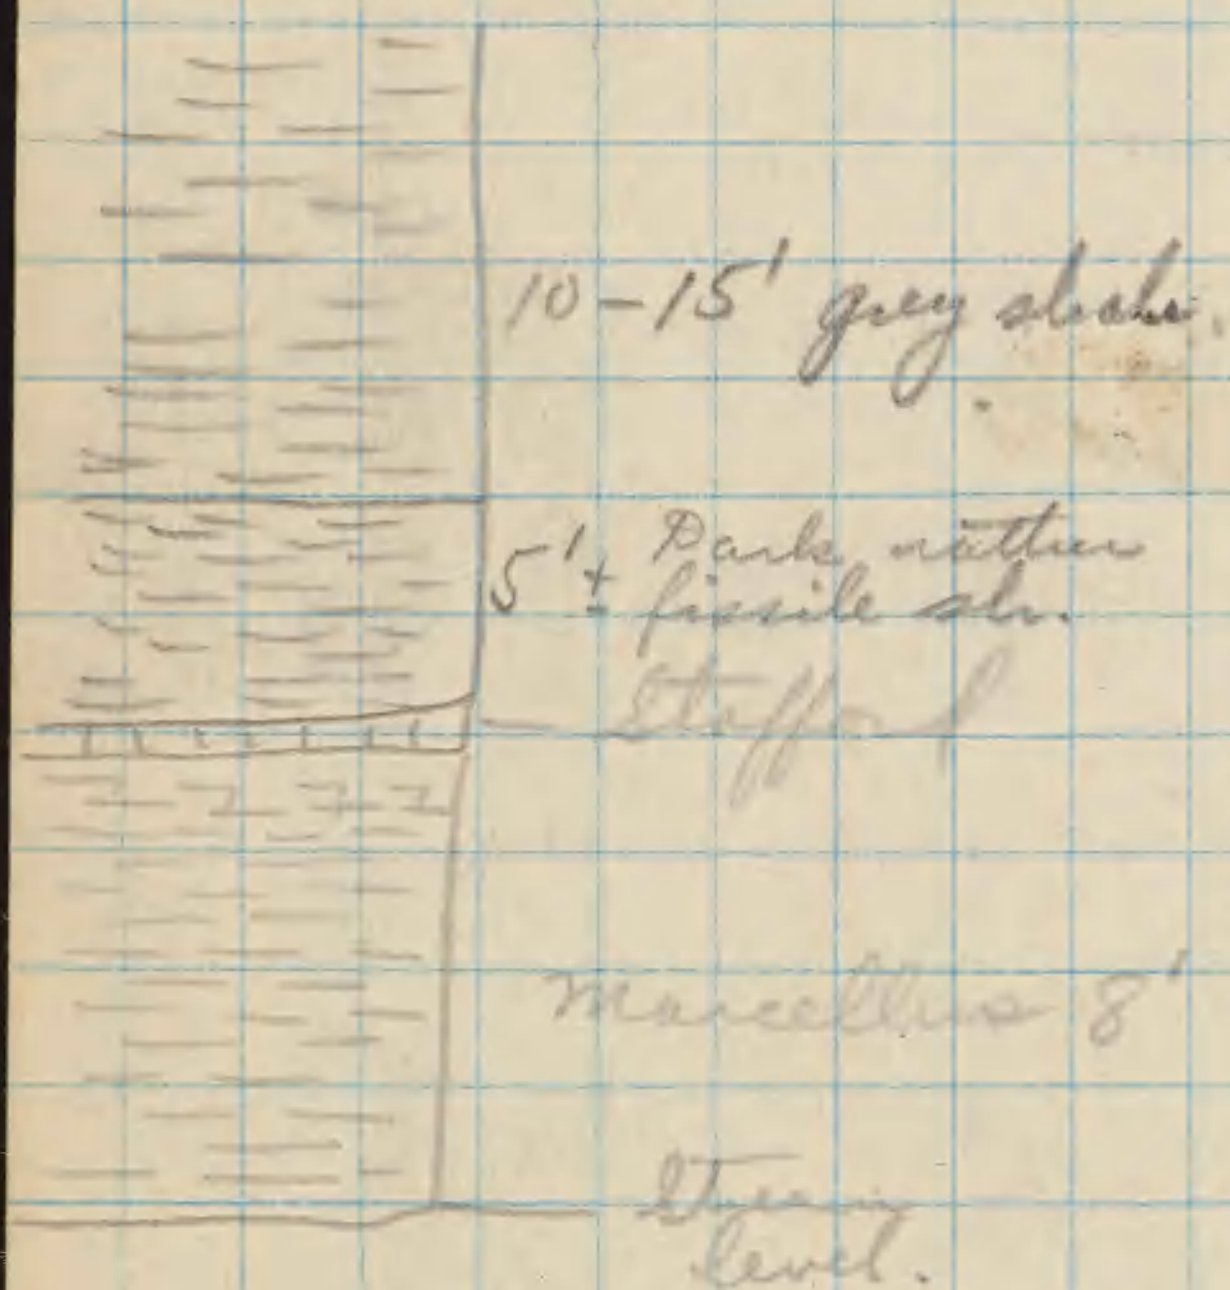 10-15' grey shale.
5'± Dark rather
fissile sh.
Stafford
Marcellus 8'
Stream
level.